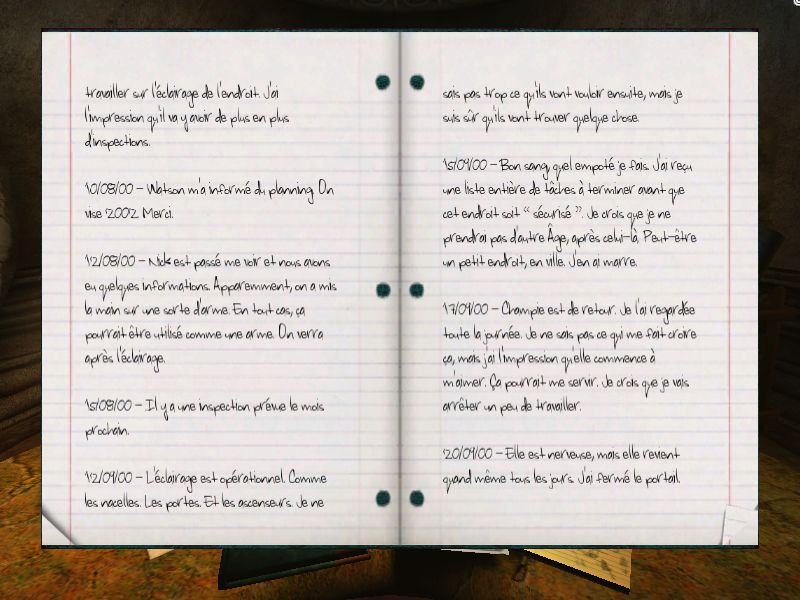 travailler sur l'éclairage de l'endroit. J'ai
l'impression qu'il va y avoir de plus en plus
d'inspections.
10/08/00 – Watson m'a informé du planning. On
vise 2002. Merci.
12/08/00 – Nick est passé me voir et nous avons
eu quelques informations. Apparemment, on a mis
la main sur une sorte d'arme. En tout cas, ça
pourrait être utilisé comme une arme. On verra
après l'éclairage.
15/08/00 – Il y a une inspection prévue le mois
prochain.
12/09/00 – L'éclairage est opérationnel. Comme
les nacelles. Les portes. Et les ascenseurs. Je ne
sais pas trop ce qu'ils vont vouloir ensuite, mais je
suis sûr qu'ils vont trouver quelque chose.
15/09/00 – Bon sang, quel empoté je fais. J'ai reçu
une liste entière de tâches à terminer avant que
cet endroit soit “ sécurisé ”. Je crois que je ne
prendrai pas d'autre Âge, après celui-là. Peut-être
un petit endroit, en ville. J'en ai marre.
17/09/00 – Champie est de retour. Je l'ai regardée
toute la journée. Je ne sais pas ce qui me fait croire
ça, mais j'ai l'impression qu'elle commence à
m'aimer. Ça pourrait me servir. Je crois que je vais
arrêter un peu de travailler.
20/09/00 – Elle est nerveuse, mais elle revient
quand même tous les jours. J'ai fermé le portail.